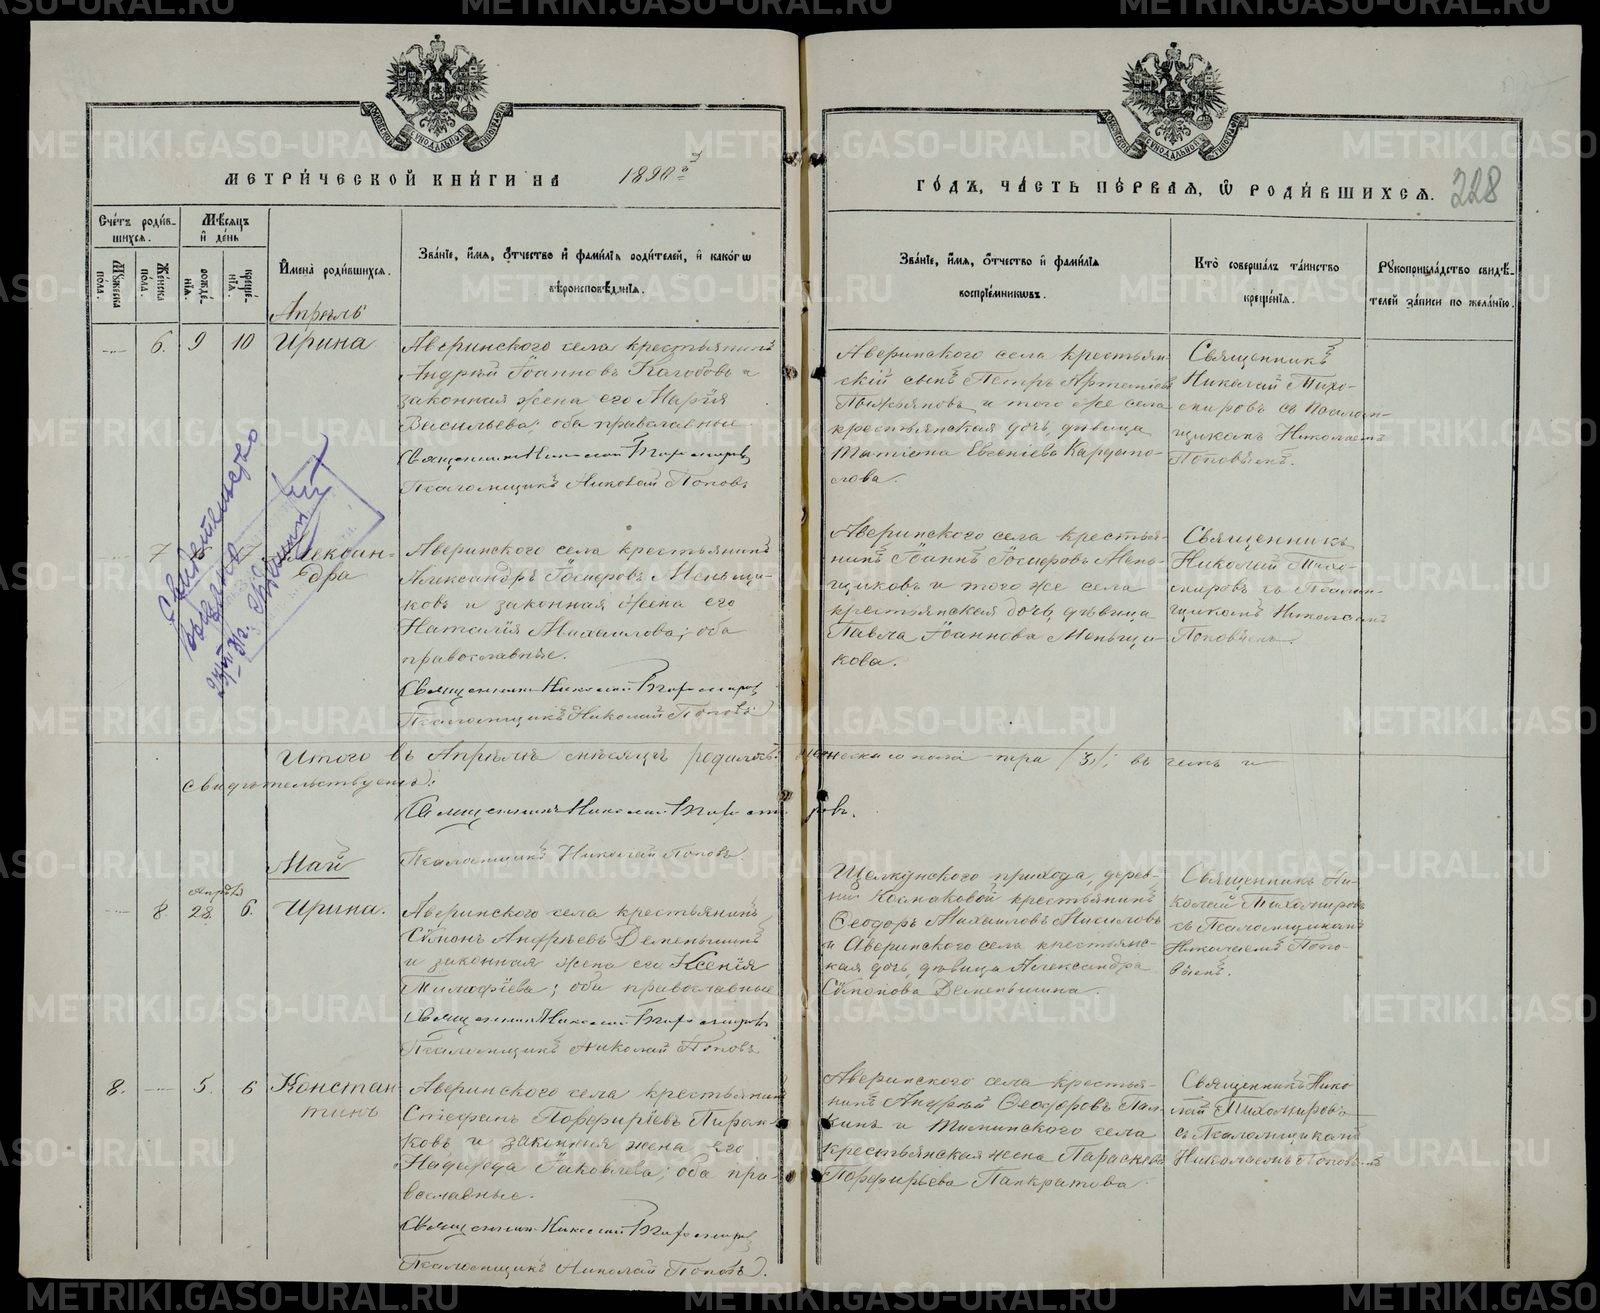 МЕТРИ́ЧЕСКОЙ КНИ́ГИ НА 1890й
ГО́ДЪ, ЧА́СТЬ ПЕ́РВАЯ, Ѿ РОДИ́ВШИХСЯ. 228
Сче́тъ роди́в-
шихся.
Мѣ́сяцъ
и҆ де́нь
Му́жеска
по́ла.
Же́нска
по́ла.
рожде́-
нія.
креще́-
нія.
И҆мена̀ роди́вшихся.
Зва́ніе, и҆́мя, ѻ҆́тчество и҆ фами́лія роди́телей, и҆ како́гѡ
вѣроисповѣ́данія.
Зва́ніе, и҆́мя, ѻ҆́тчество и҆ фами́лія
воспріе́мникѡвъ.
Кто̀ соверша́лъ та́инство
креще́нія.
Рꙋкоприкла́дство свидѣ́-
телей за́писи по жела́нію.
Апрѣль
6. 9 10 Ирина
Аверинского села крестьянинъ
Андрей Іоанновъ и
законная жена его Марія
Васильева; оба православные
Священникъ Николай Тихомировъ
Псаломщикъ Николай Поповъ
Аверинского села крестьян-
скій сынъ Петръ Артеміевъ
и того же села
крестьянская дочь, дѣвица
Татіана Евгеніева Кардапо-
лова.
Священникъ
Николай Тихо-
мировъ съ Псалом-
щикомъ Николаемъ
Поповымъ.
7 Александ-
дра
Аверинского села крестьянинъ
Александръ Іосифовъ Меньщи-
ковъ и законная жена его
Наталія Михаилова; оба
православные.
Священникъ Николай Тихомировъ
Псаломщикъ Николай Поповъ
Аверинского села крестья-
нинъ Іоаннъ Іосифовъ Мень-
щиковъ и того же села
крестьянская дочь, дѣвица
Павла Іоаннова Меньщи-
кова.
Священникъ
Николай Тихо-
мировъ съ Псалом-
щикомъ Николаемъ
Поповымъ.
Свидетельство
выдано
Итого въ Апрѣлѣ мѣсяцѣ родилось женска пола три /3/; въ чемъ и
свидѣтельствуемъ:
Священникъ Николай Тихомировъ.
Псаломщикъ Николай Поповъ.
Май
Апрѣля
8 28. 6. Ирина.
Аверинского села крестьянинъ
Сѵмонъ Андреевъ Деменьшинъ
и законная жена его Ксенія
Тимофіева; оба православные
Священникъ Николай Тихомировъ
Псаломщикъ Николай Поповъ
Щелкунского прихода, дерев-
ни Космаковой крестьянинъ
Ѳеодоръ Михаиловъ
и Аверинского села крестьянс-
кая дочь, дѣвица Александра
Сѵмонова Деменьшина.
Священникъ Ни-
колай Тихомировъ
съ Псаломщикомъ
Николаемъ Попо-
вымъ.
8. 5. 6 Констан-
тинъ
Аверинского села крестьянинъ
Стефанъ Порфиріевъ
ковъ и законная жена его
Надежда Іаковлева; оба пра-
вославные.
Священникъ Николай Тихомировъ
Псаломщикъ Николай Поповъ.
Аверинского села крестья-
нинъ Андрей Ѳеодоровъ Пал-
кинъ и села
крестьянская жена Параскева
Порфирьева Панкратова
Священникъ Нико-
лай Тихомировъ
съ Псаломщикомъ
Николаемъ Поповымъ
METRIKI.GASO-URAL.RU